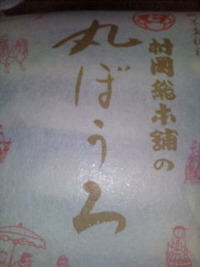 村岡総本舗の
丸ぼうろ